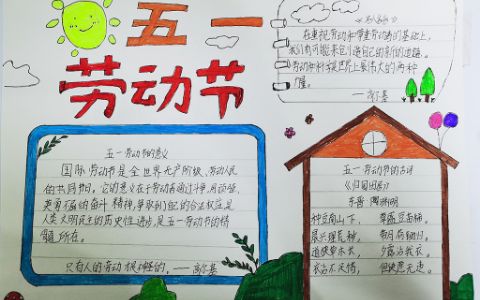 五一
劳动节
在重视劳动和尊重劳动者的基础上,
我们有可能来创造自己的新的道德。
劳动和科学是世界上最伟大的两种
力量。——高尔基
五一劳动节的意义
国际劳动节是全世界无产阶级、劳动人民
的共同节日。它的意义在于劳动者通过斗争,用顽强、
英勇不屈的奋斗精神,争取到了自己的合法权益,是
人类文明民主的历史性进步,是五一劳动节的精
髓所在。
只有人的劳动才是神圣的。——高尔基
五一劳动节的古诗
《归园田居》
东晋 陶渊明
种豆南山下, 草盛豆苗稀。
晨兴理荒秽, 带月荷锄归。
道狭草木长, 夕露沾我衣。
衣沾不足惜, 但使愿无违。